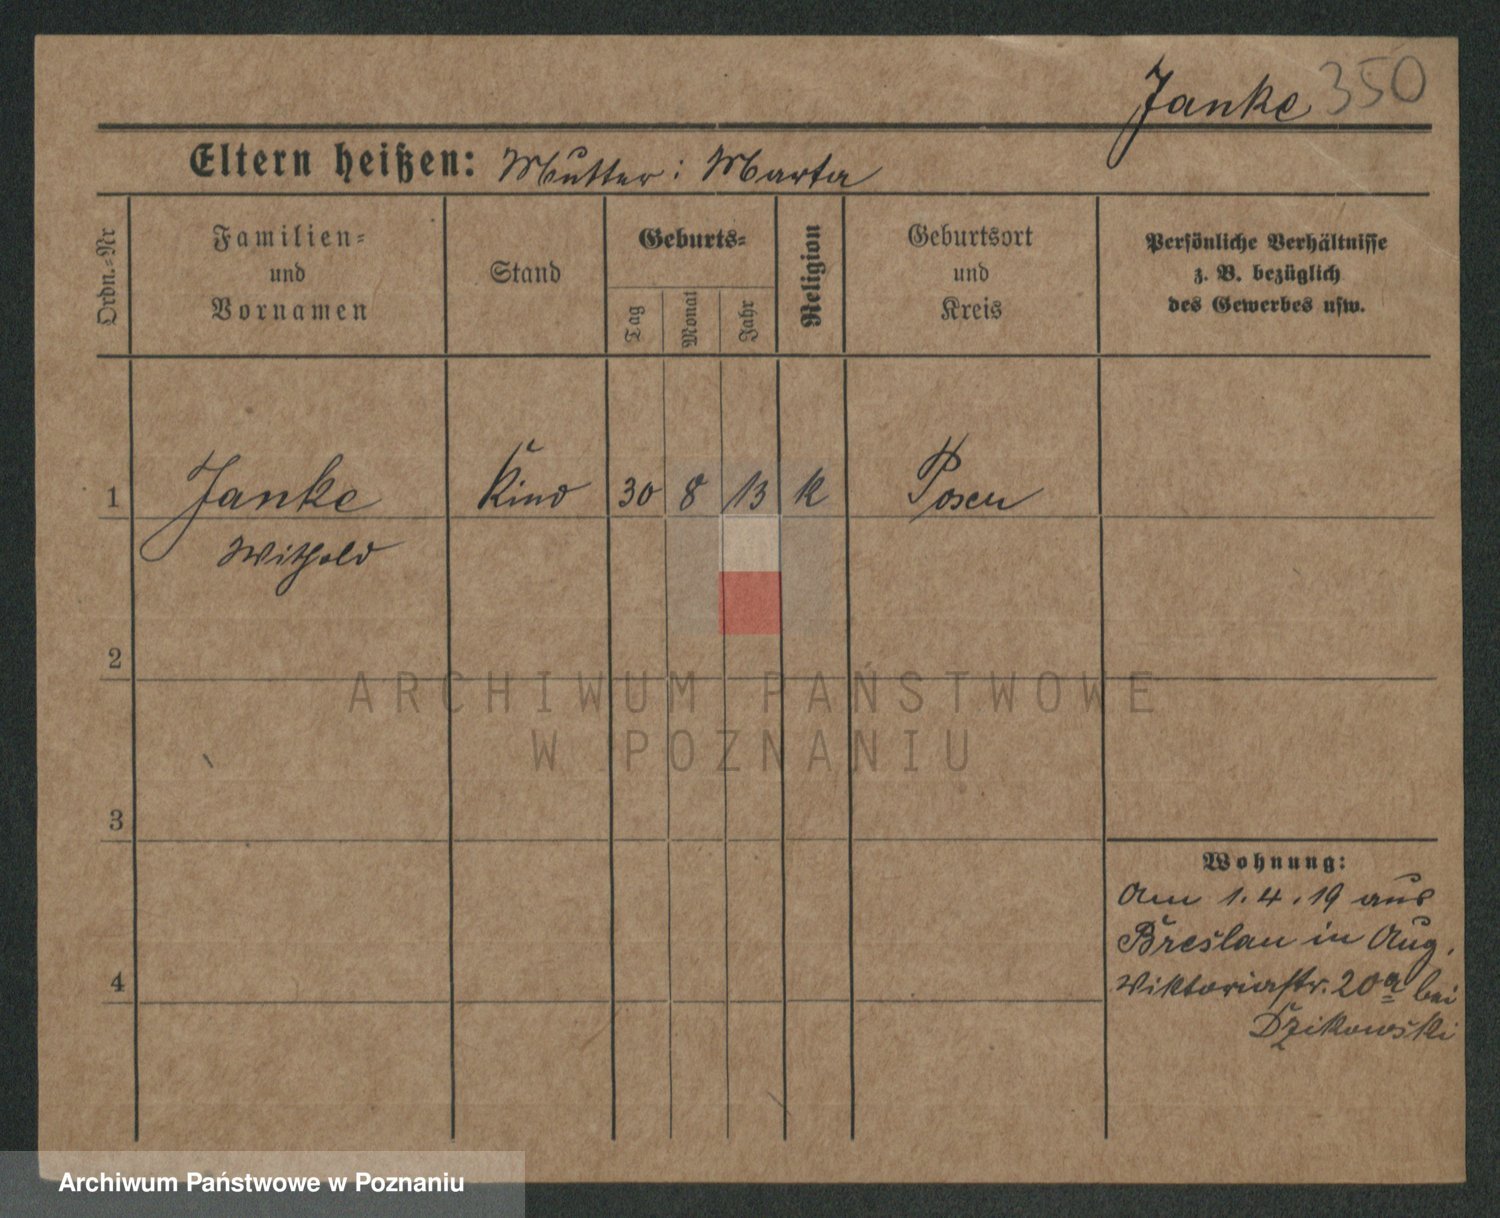 Janke 350
Eltern heißen: Mutter: Marta
Ordn.-Nr
Familien-
und
Vornamen
Stand
Geburts-
Tag
Monat
Jahr
Religion
Geburtsort
und
Kreis
Persönliche Verhältnisse
z. B. bezüglich
des Gewerbes usw.
1 Janke Kind 30 8 13 k Posen
Withold
2
3
4
Wohnung:
Am 1.4.19 aus
Breslau in Aug.
Viktoriastr. 20a bei
Dzikowski
ARCHIWUM PAŃSTWOWE
W POZNANIU
Archiwum Państwowe w Poznaniu